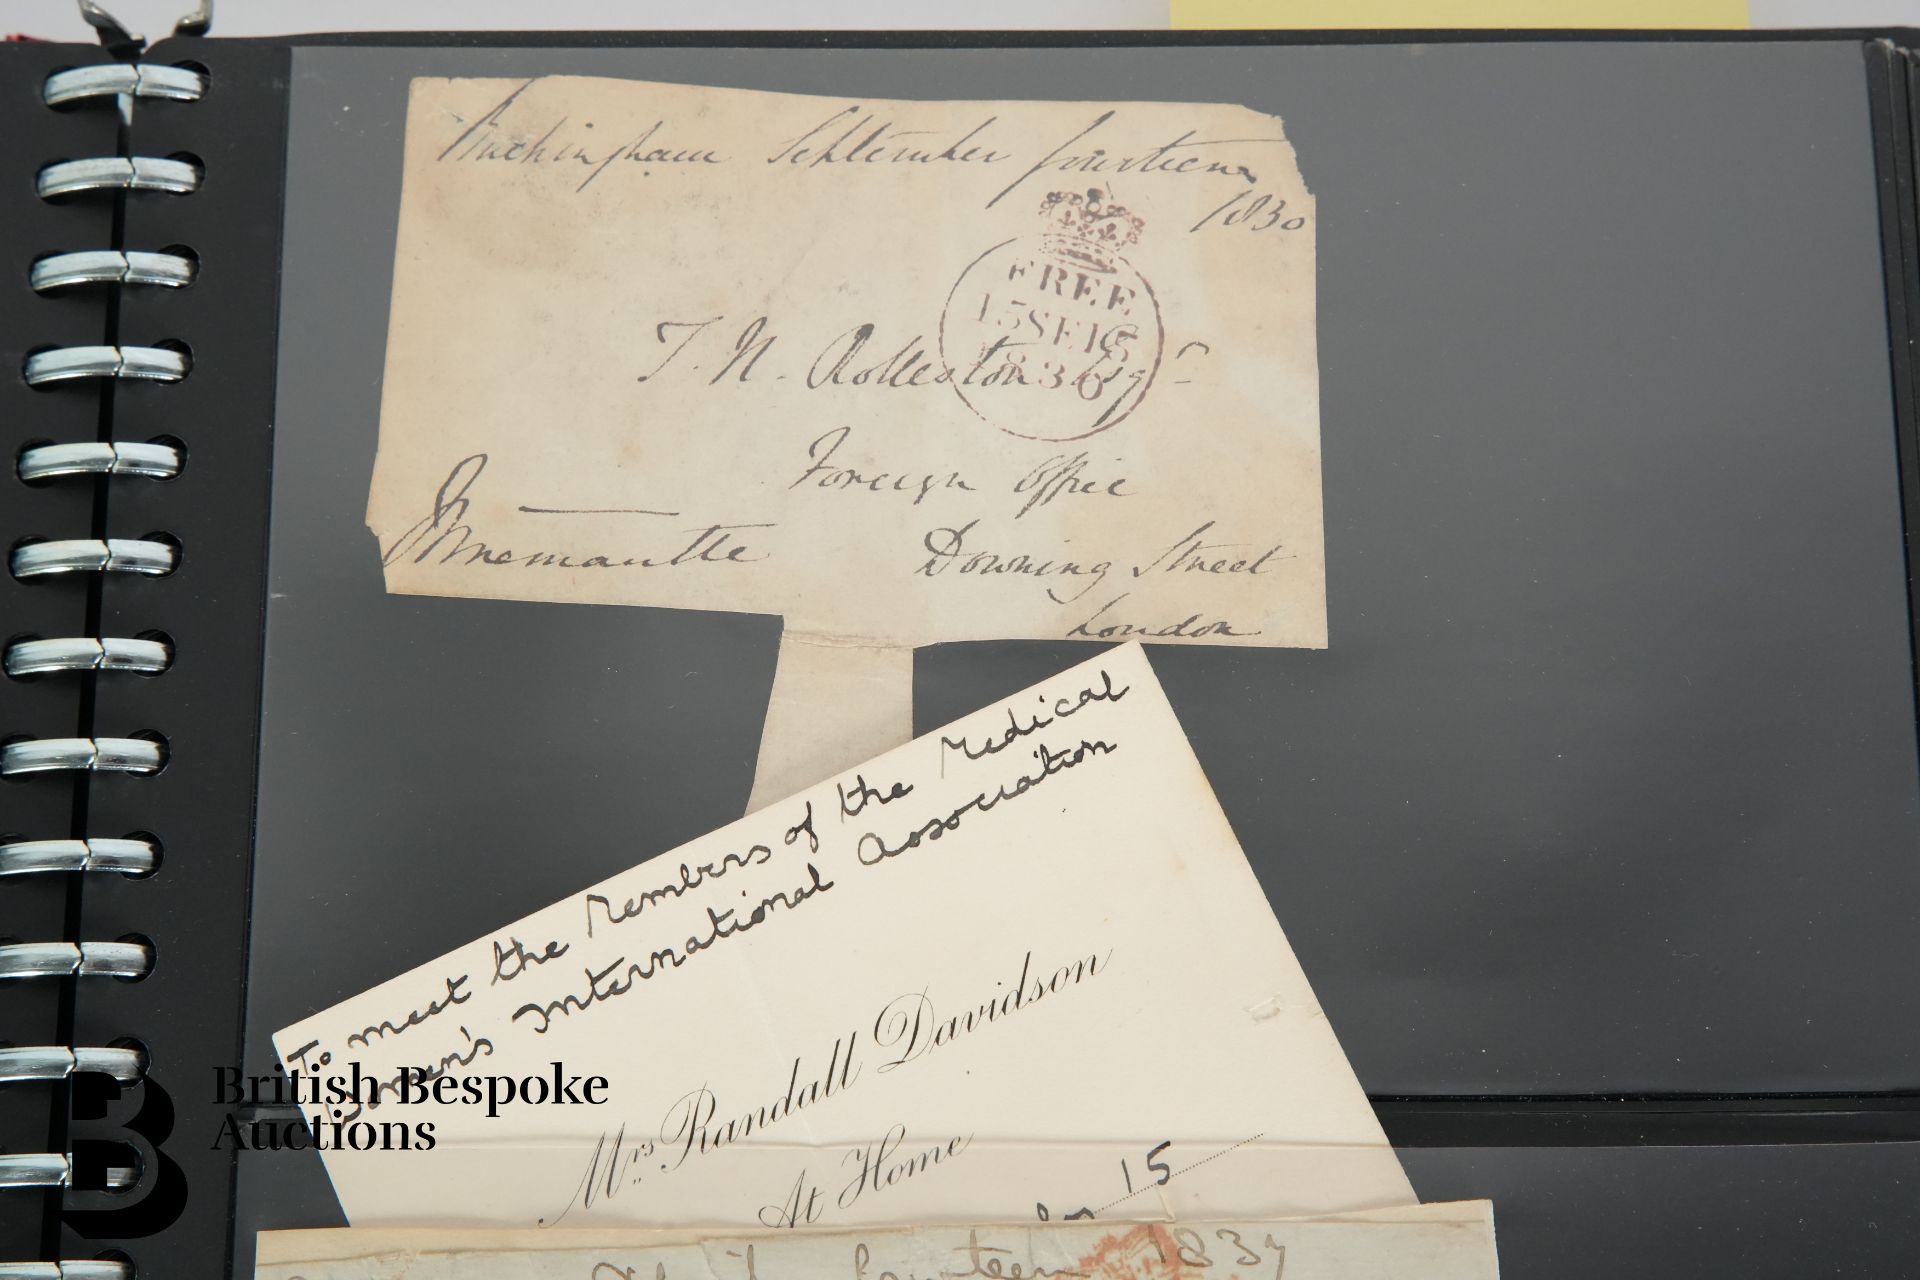 Buckingham September fourteen
1830
FREE
15SE15
1830
T. N. Rolleston Esqr
Foreign Office
Fremantle
Downing Street
London
To meet the Members of the Medical
Women's International Association
Mrs Randall Davidson
At Home
15
fourteen 1837
British Bespoke
Auctions
B